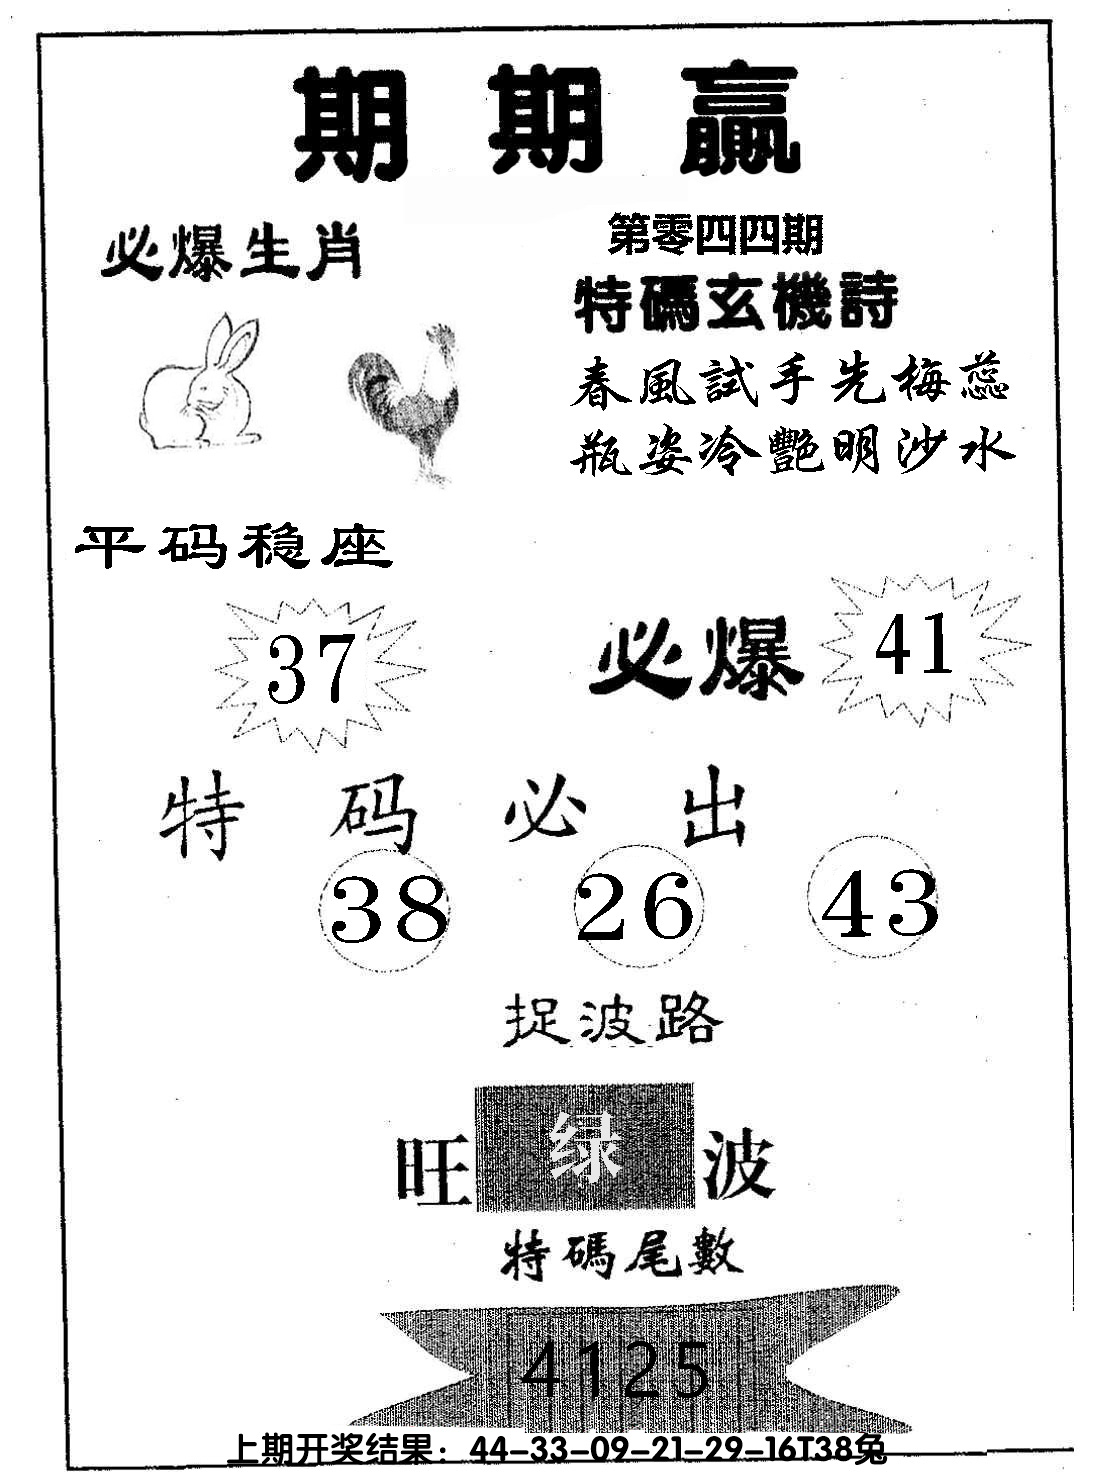 期期贏
必爆生肖
第零四四期
特碼玄機詩
春風試手先梅蕊
瓶姿冷艷明沙水
平码稳座
37
必爆 41
特码必出
38 26 43
捉波路
旺 绿 波
特碼尾數
4125
上期开奖结果：44-33-09-21-29-16T38兔